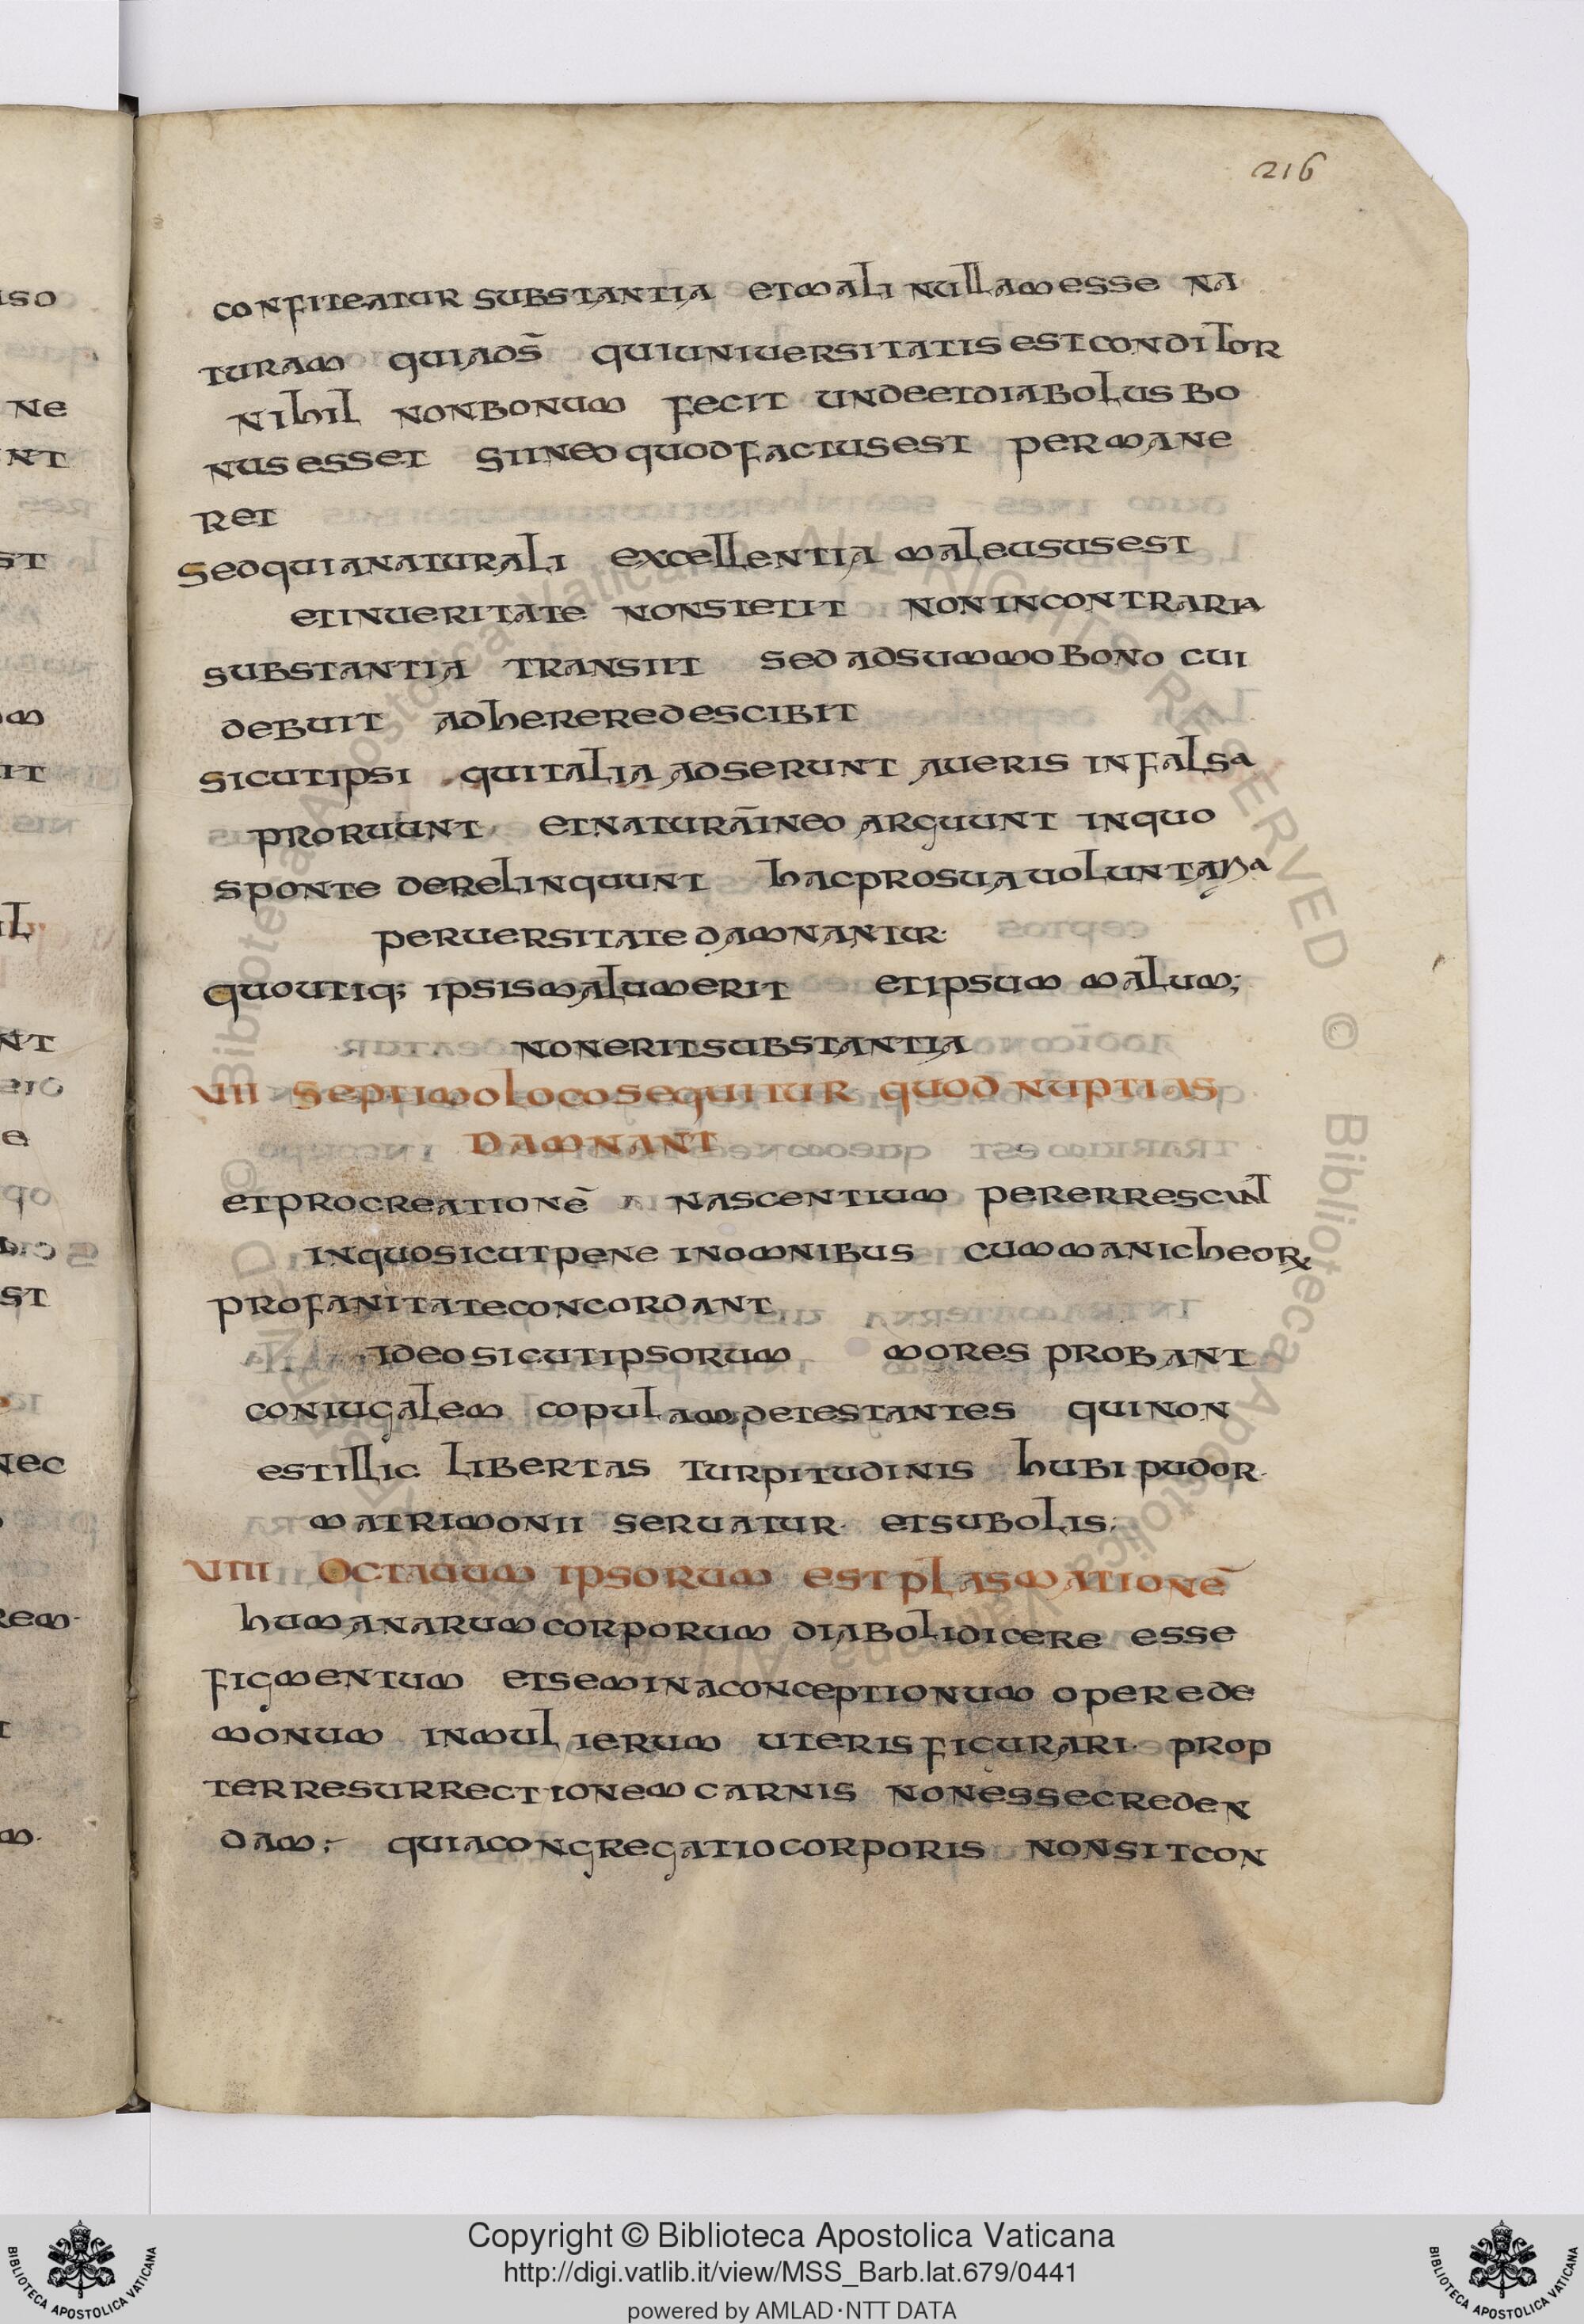 216
confiteatur substantia et mali nullam esse na
turam quia d̄s qui uniuersitatis est conditor
nihil non bonum fecit unde et diabolus bo
nus esset si in eo quod factus est permane
ret
sed quia naturali excellentia male usus est
et in ueritate non stetit non in contraria
substantia transiit sed ad summo bono cui
debuit adherere descibit
sicut ipsi qui talia adserunt a ueris in falsa
proruunt et naturā in eo arguunt in quo
sponte derelinquunt hac pro sua uoluntaria
peruersitate damnantur.
quo utiq; ipsis malum erit et ipsum malum;
non erit substantia
VII Septimo loco sequitur quod nuptias
damnant
et procreationē nascentium pererrescunt
in quo sicut pene in omnibus cum manicheor̷
profanitate concordant
ideo sicut ipsorum mores probant
coniugalem copulam detestantes qui non
est illic libertas turpitudinis hubi pudor.
matrimonii seruatur. et subolis;
VIII Octauum ipsorum est plasmationē
humanarum corporum diaboli dicere esse
figmentum et semina conceptionum opere de
monum in mulierum uteris figurari. prop
ter resurrectionem carnis non esse creden
dam; quia congregatio corporis non sit con
so
ne
nt
st
om
it
nt
e
st
nec
rem.
m.
Copyright © Biblioteca Apostolica Vaticana
http://digi.vatlib.it/view/MSS_Barb.lat.679/0441
powered by AMLAD·NTT DATA
BIBLIOTECA APOSTOLICA VATICANA
BIBLIOTECA APOSTOLICA VATICANA